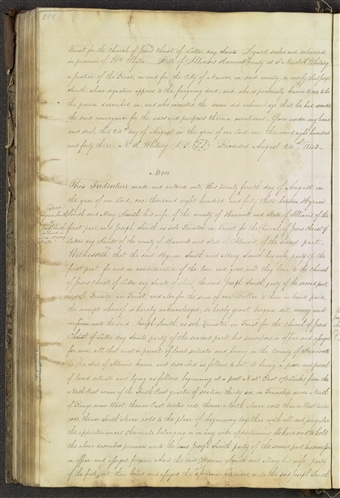 trust for the Church of Jesus Christ of Latter day Saints. Signed sealed and delivered
in presence of Wm State of Illinois Hancock County ss I Newel K Whitney
a Justice of the Peace in and for the City of Nauvoo in said County, do certify that Joseph
Smith whose signature appears to the foregoing deed, and who is personally known to me to be
the person described in, and who executed the same did acknowledge that he had executed
the said conveyance for the uses and purposes therein mentioned. Given under my hand
and seal, this 24th day of August in the year of our Lord one thousand eight hundred
and forty three N. K. Whitney J. P. Recorded August 24th 1843
This Indenture made and entered into this twenty fourth day of August in
the year of our Lord, one thousand eight hundred and forty three between Hyrum
Smith and Mary Smith his wife of the County of Hancock and State of Illinois of the
first part and Joseph Smith as sole Trustee in Trust for the Church of Jesus Christ of
Latter day Saints of the County of Hancock and State of Illinois of the second part.
Witnesseth that the said Hyrum Smith and Mary Smith his wife party of the
first part for and in consideration of the love and good will they bear to the Church
of Jesus Christ of Latter day Saints of which the said Joseph Smith party of the second part
is sole Trustee in Trust, and also for the sum of one Dollar to them in hand paid,
the receipt whereof is hereby acknowledged, do hereby grant bargain sell, convey and
confirm unto the said Joseph Smith as sole Trustee in Trust for the Church of Jesus
Christ of Latter day Saints party of the second part his successors in office and assigns
for ever, all that tract or parcel of land situate and being in the County of Hancock
and State of Illinois known and described as follows to wit, it being a piece and parcel
of land situate and lying as follows, beginning at a post East from the
North East corner of the South East quarter of section thirty six in Township seven North
of Range nine West thence East twelve rods thence South eleven rods thence West twelve
rods thence North eleven rods to the place of beginning together with all and singular
the appurtenances thereunto belonging or in any wise appertaining. To have and to hold
the above described premises unto the said Joseph Smith party of the second part his successors
in office and assigns forever And the said Hyrum Smith and Mary his wife party
of the first part their heirs and assigns the aforesaid premises unto the said Joseph Smith